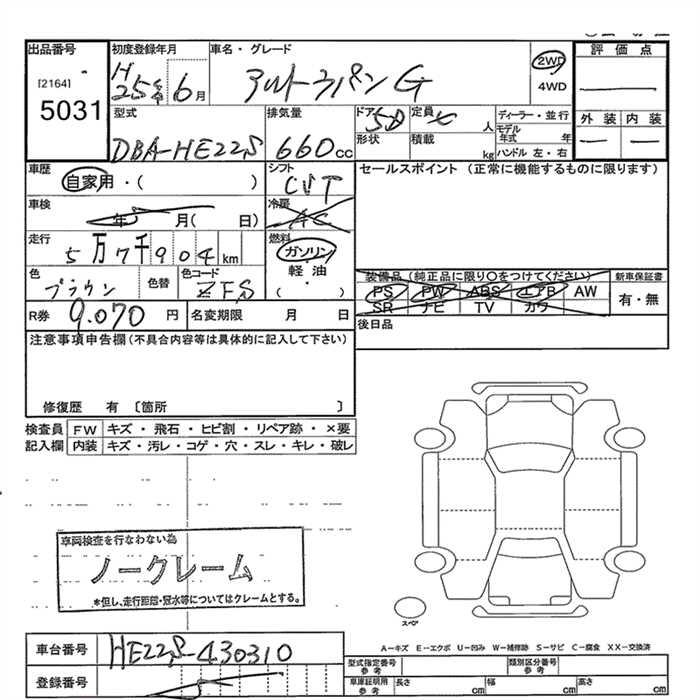 出品番号 初度登録年月 車名・グレード 2WD 評価点
[2164] H25年 6月 アルトラパンG 4WD
5031 外装 内装
型式 排気量 ドア 定員 ディーラー・並行
5D 人 モデル年式 年
DBA-HE22S 660cc 形状 積載 kg ハンドル 左・右
車歴 シフト セールスポイント (正常に機能するものに限ります)
自家用・( ) CVT
車検 冷房
年 月( 日) AC
走行 燃料
5万7千904km ガソリン
色 色替 色コード 軽油
ブラウン ZFS ・
( )
装備品(純正品に限り○をつけてください) 新車保証書
PS PW ABS エアB AW 有・無
SR ナビ TV カワ
R券 9.070円 名変期限 月 日 後日品
注意事項申告欄(不具合内容等は具体的に記入して下さい)
修復歴 有 〔箇所 〕
検査員 FW キズ・飛石・ヒビ割・リペア跡・×要
記入欄 内装 キズ・汚レ・コゲ・穴・スレ・キレ・破レ
車両検査を行なわない為
ノークレーム
*但し、走行距離・冠水等についてはクレームとする。
スペア
A-キズ E-エクボ U-凹み W-補修跡 S-サビ C-腐食 XX-交換済
車台番号 HE22S-430310
型式指定番号 参考 類別区分番号 参考
登録番号 車庫証明用 参考 長さ cm 幅 cm 高さ cm